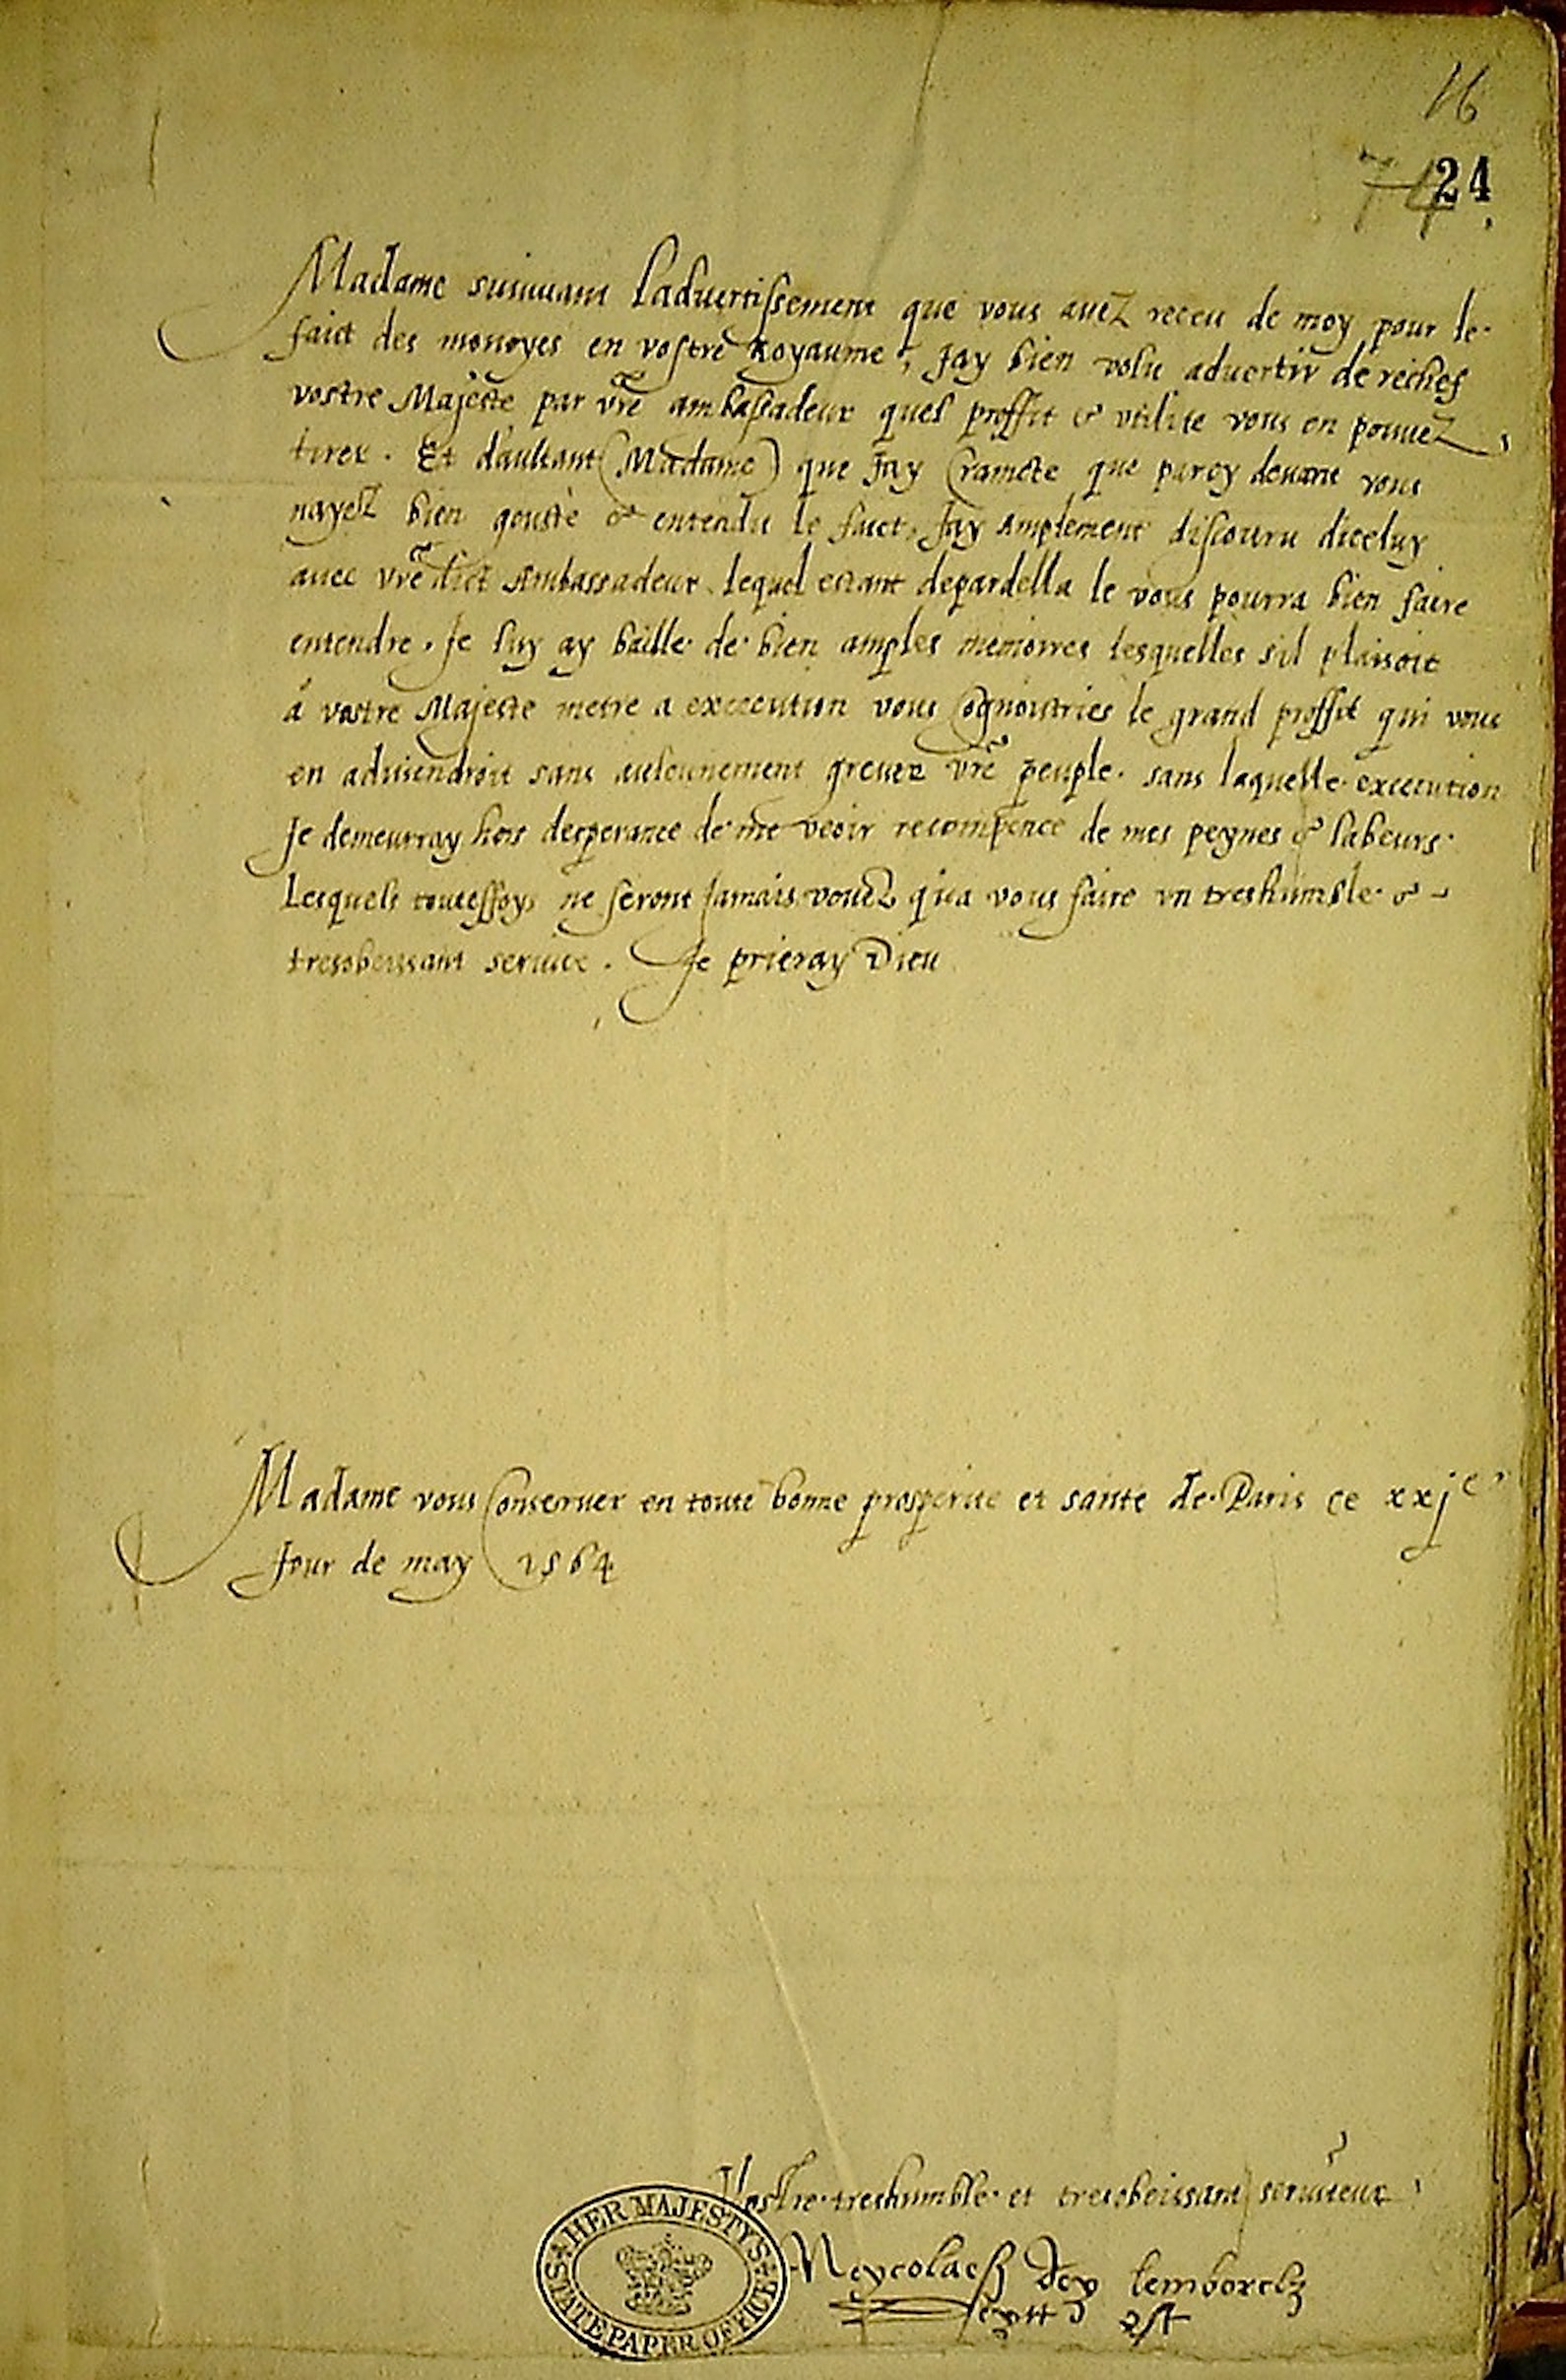 16
74 24
Madame suiuuant Laduertissement que vous auez receu de moy pour le
faict des monoyes en vostre Royaume, Jay bien volu aduertir de rechef
vostre Majeste par vre ambassadeur quel proffit & vtilite vous en pouuez
tirer. Et d'aultant (Madame) que Jay Craincte que parcy deuant vous
nayez bien gousté & entendu le faict, Jay amplement discouru diceluy
auec vre dict Ambassadeur lequel estant depardella le vous pourra bien faire
entendre. Je luy ay baille de bien amples memoires lesquelles sil plaisoit
á vostre Majeste metre a excecution vous Cognoistries le grand proffit qui vous
en aduiendroit sans aulcunement greuer vre peuple. sans laquelle excecution
Je demeurray hors desperance de me veoir recompence de mes peynes & labeurs
Lesquels touteffoys ne seront Jamais vouez qua vous faire vn treshumble &
tresobeissant seruice. Je prieray Dieu
Madame vous Conseruer en toute bonne prosperite et sante de Paris ce xxje
Jour de may 1564
Vostre treshumble et tresobeissant seruiteur
Neycolaeß
HER MAJESTY'S
STATE PAPER OFFICE